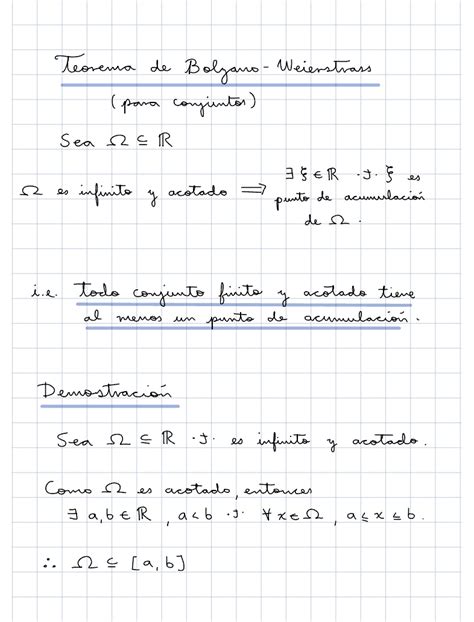 Teorema de Bolzano-Weierstrass
(para conjuntos)
Sea Ω ⊆ ℝ
Ω es infinito y acotado ⟹ ∃ ξ ∈ ℝ ·J· ξ es
punto de acumulación
de Ω.
i.e. todo conjunto finito y acotado tiene
al menos un punto de acumulación.
Demostración
Sea Ω ⊆ ℝ ·J· es infinito y acotado.
Como Ω es acotado, entonces
∃ a, b ∈ ℝ, a < b ·J· ∀ x ∈ Ω, a ≤ x ≤ b.
∴ Ω ⊆ [a, b]